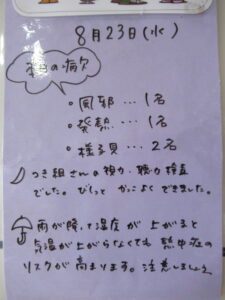 8月23日(水)
本日の病欠
・風邪…1名
・発熱…1名
・様子見…2名
つき組さんの視力・聴力検査
でした。びしっと かっこよく できました。
雨が降って湿度が上がると
気温が上がらなくても 熱中症の
リスクが高まります。注意しましょう